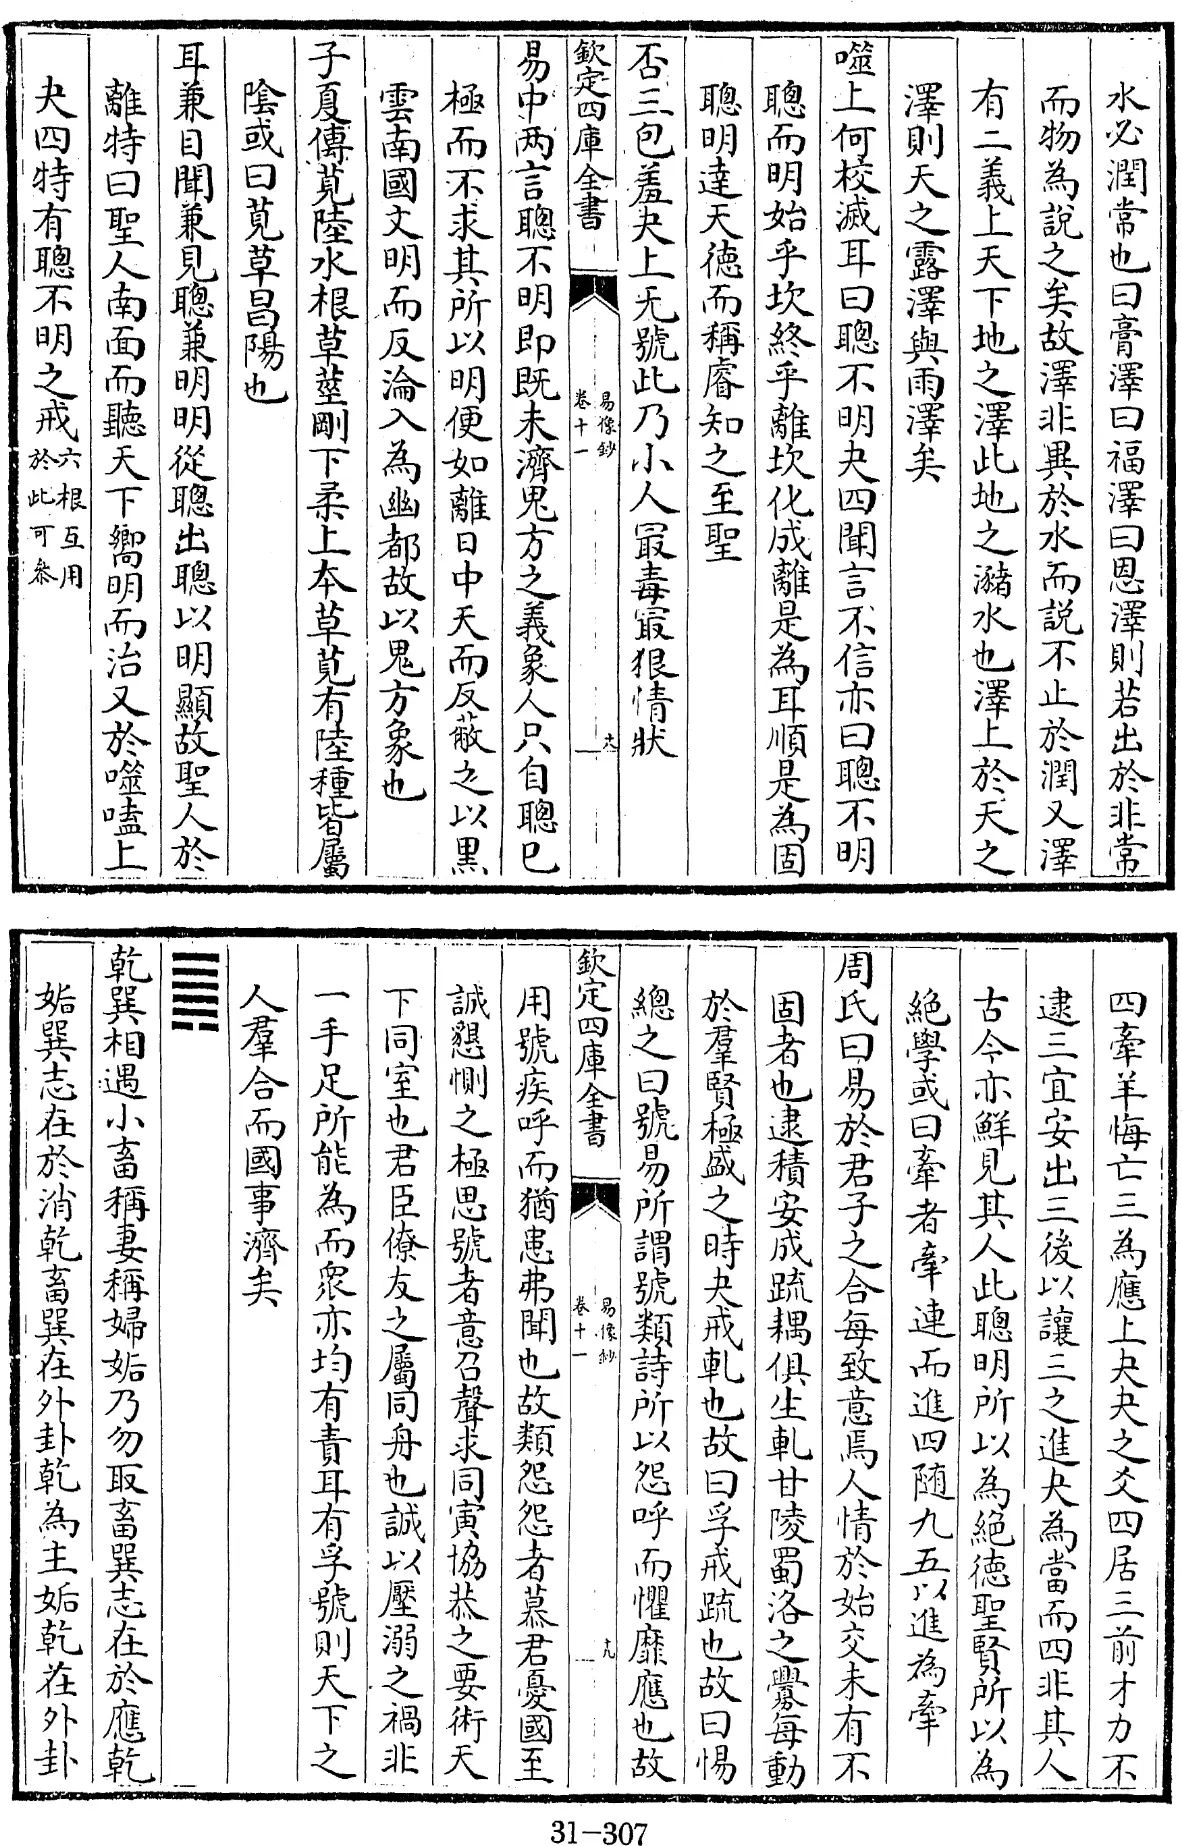 水必潤常也曰膏澤曰福澤曰恩澤則若出於非常
而物為說之矣故澤非異於水而説不止於潤又澤
有二義上天下地之澤此地之瀦水也澤上於天之
澤則天之露澤與雨澤矣
噬上何校滅耳曰聰不明夬四聞言不信亦曰聰不明
聰而明始乎坎終乎離坎化成離是為耳順是為固
聰明達天德而稱睿知之至聖
否三包羞夬上无號此乃小人最毒最狠情狀
欽定四庫全書
易像鈔
卷十一
十八
易中两言聰不明即既未濟鬼方之義象人只自聰已
極而不求其所以明便如離日中天而反蔽之以黑
雲南國文明而反淪入為幽都故以鬼方象也
子夏傳莧陸水根草莖剛下柔上本草莧有陸種皆屬
陰或曰莧草昌陽也
耳兼目聞兼見聰兼明明從聰出聰以明顯故聖人於
離特曰聖人南面而聽天下嚮明而治又於噬嗑上
夬四特有聰不明之戒六根互用
於此可叅
四牽羊悔亡三為應上夬夬之爻四居三前才力不
逮三宜安出三後以讓三之進夬為當而四非其人
古今亦鮮見其人此聰明所以為絕德聖賢所以為
絕學或曰牽者牽連而進四随九五以進為牽
周氏曰易於君子之合每致意焉人情於始交未有不
固者也逮積安成疏耦俱生軋甘陵蜀洛之釁每動
於羣賢極盛之時夬戒軋也故曰孚戒疏也故曰惕
總之曰號易所謂號類詩所以怨呼而懼靡應也故
欽定四庫全書
易像鈔
卷十一
十九
用號疾呼而猶患弗聞也故類怨怨者慕君憂國至
誠懇惻之極思號者意召聲求同寅協恭之要術天
下同室也君臣僚友之屬同舟也誠以壓溺之禍非
一手足所能為而衆亦均有責耳有孚號則天下之
人羣合而國事濟矣
䷫
乾巽相遇小畜稱妻稱婦姤乃勿取畜巽志在於應乾
姤巽志在於消乾畜巽在外卦乾為主姤乾在外卦
31-307